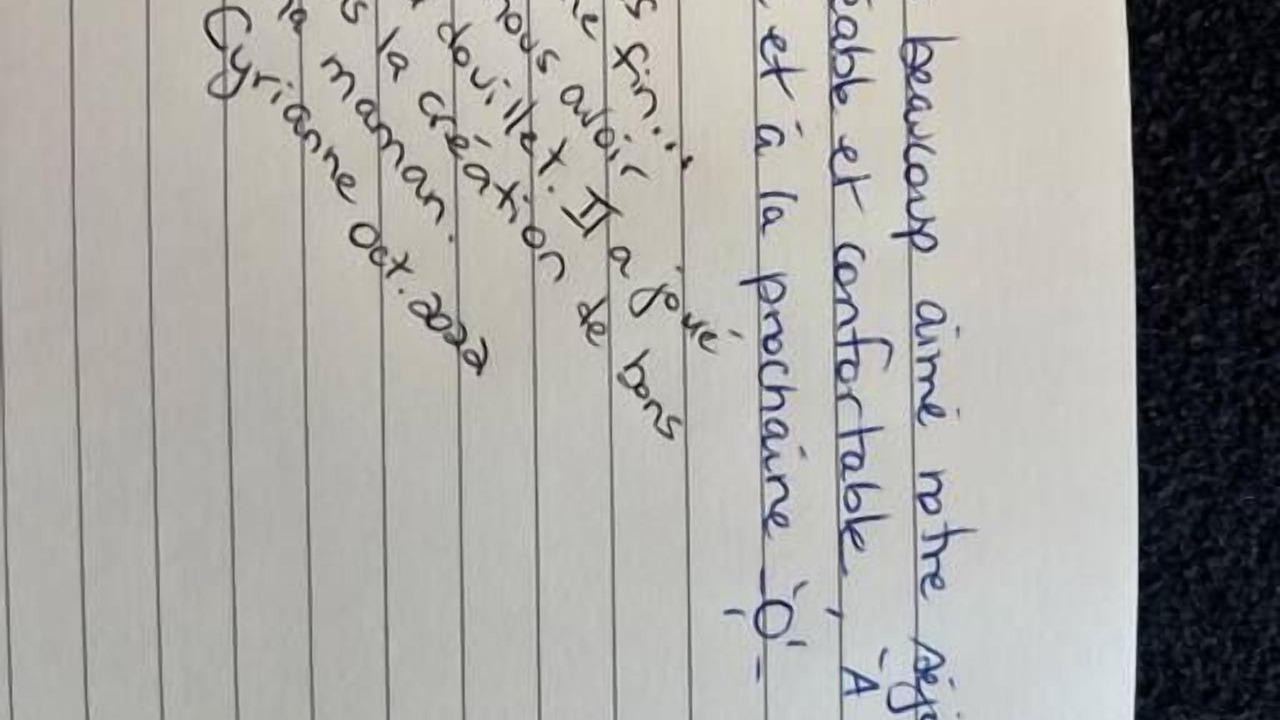 beaucoup aimé notre séjo
éable et confortable, À
et à la prochaine
s fin...
avoir
douillet. Il a joué
la création de bons
maman.
Cyrianne Oct. 2022